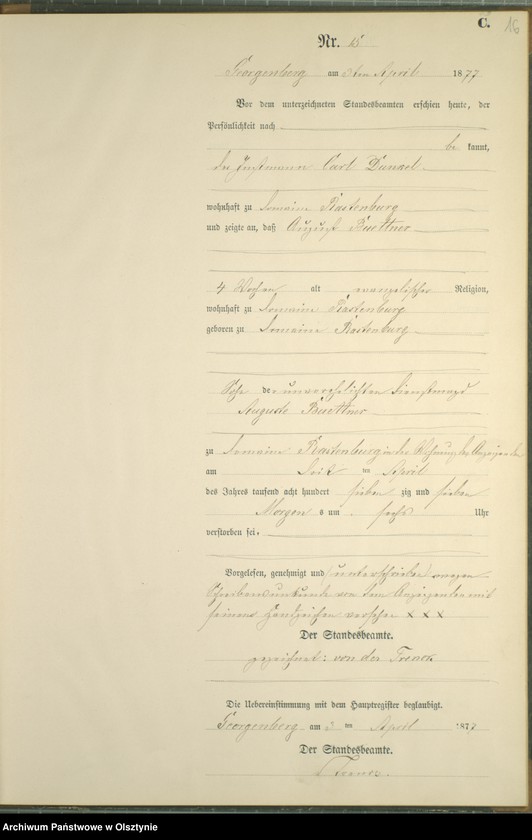 C. 16
Nr. 15
Georgenberg am 3ten April 1877
Vor dem unterzeichneten Standesbeamten erschien heute, der
Persönlichkeit nach
be kannt,
der Instmann Carl Dunkel
wohnhaft zu Domaine Rastenburg
und zeigte an, daß August Buettner
4 Wochen alt evangelischer Religion,
wohnhaft zu Domaine Rastenburg
geboren zu Domaine Rastenburg
Sohn der unverehelichten Dienstmagd
Auguste Buettner
zu Domaine Rastenburg in der Wohnung des Anzeigenden
am ten April
des Jahres tausend acht hundert sieben zig und sieben
Morgens um sechs Uhr
verstorben sei.
Vorgelesen, genehmigt und (unterschrieben) wegen
Schreibensunkunde von dem Anzeigenden mit
seinem Handzeichen versehen XXX
Der Standesbeamte.
gezeichnet: von der Trenck
Die Uebereinstimmung mit dem Hauptregister beglaubigt.
Georgenberg am 3 ten April 1877
Der Standesbeamte.
Trenck.
Archiwum Państwowe w Olsztynie